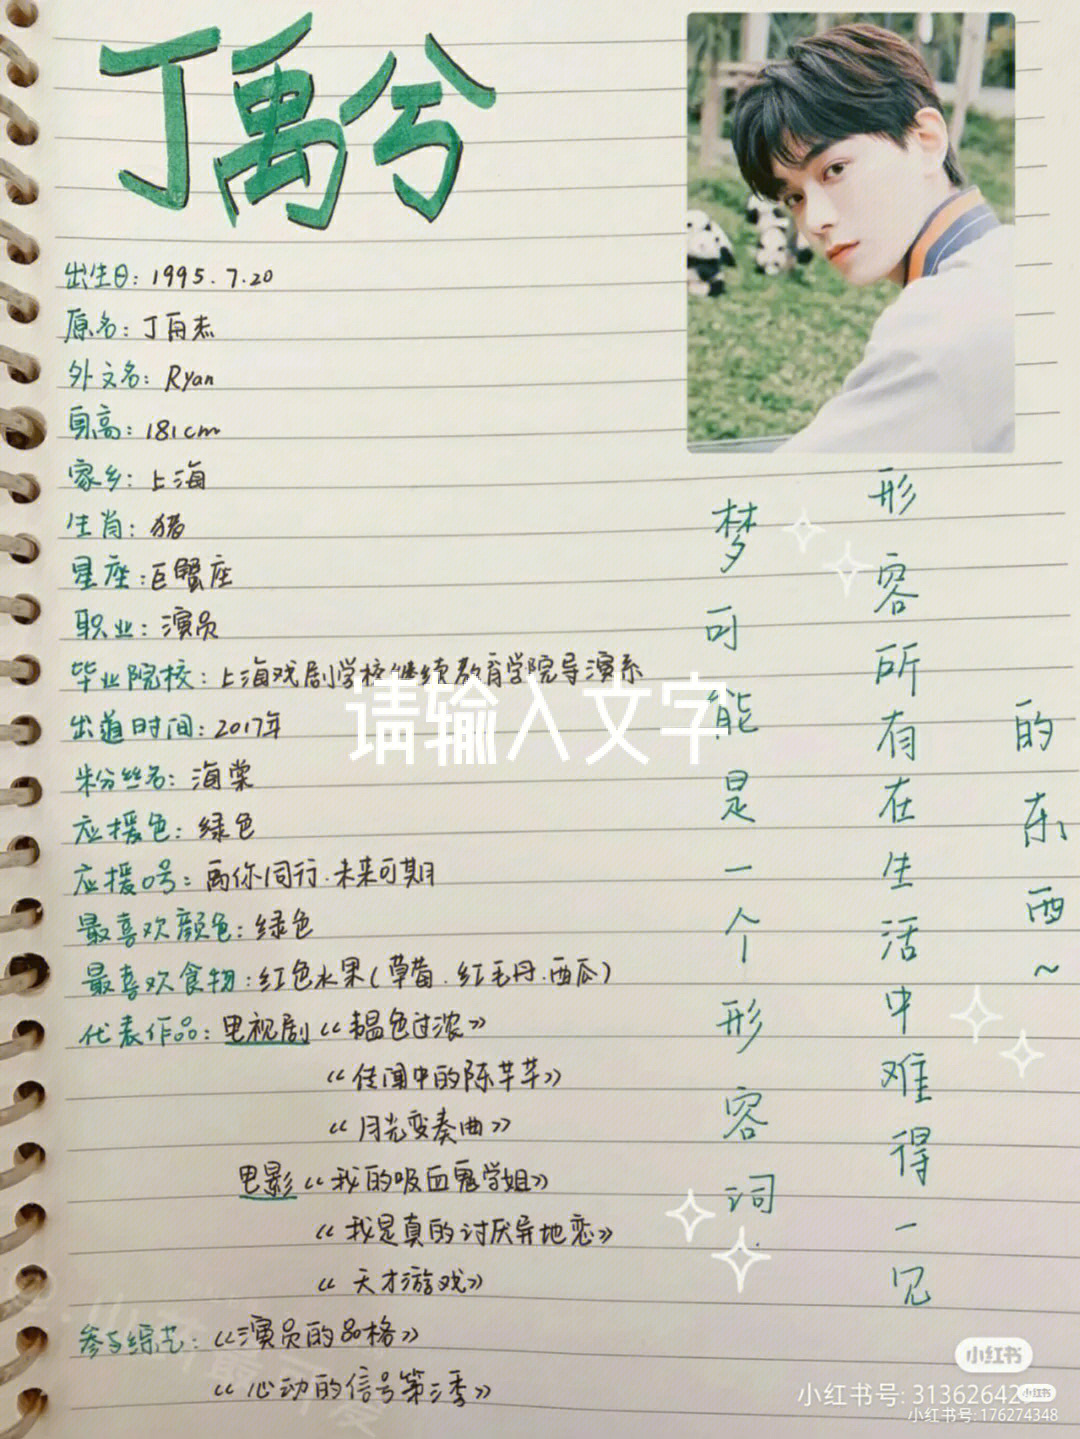 丁禹兮
出生日：1995.7.20
原名：丁冉杰
外文名：Ryan
身高：181cm
家乡：上海
生肖：猪
星座：巨蟹座
职业：演员
毕业院校：上海戏剧学校继续教育学院导演系
出道时间：2017年
粉丝名：海棠
应援色：绿色
应援口号：两你同行.未来可期
最喜欢颜色：绿色
最喜欢食物：红色水果(草莓.红毛丹.西瓜)
代表作品：电视剧《韫色过浓》
《传闻中的陈芊芊》
《月光变奏曲》
电影《我的吸血鬼学姐》
《我是真的讨厌异地恋》
《天才游戏》
参与综艺：《演员的品格》
《心动的信号第三季》
梦可能是一个形容词
形容所有在生活中难得一见
的东西~
请输入文字
小红书
小红书号: 31362642
小红书
小红书号: 176274348